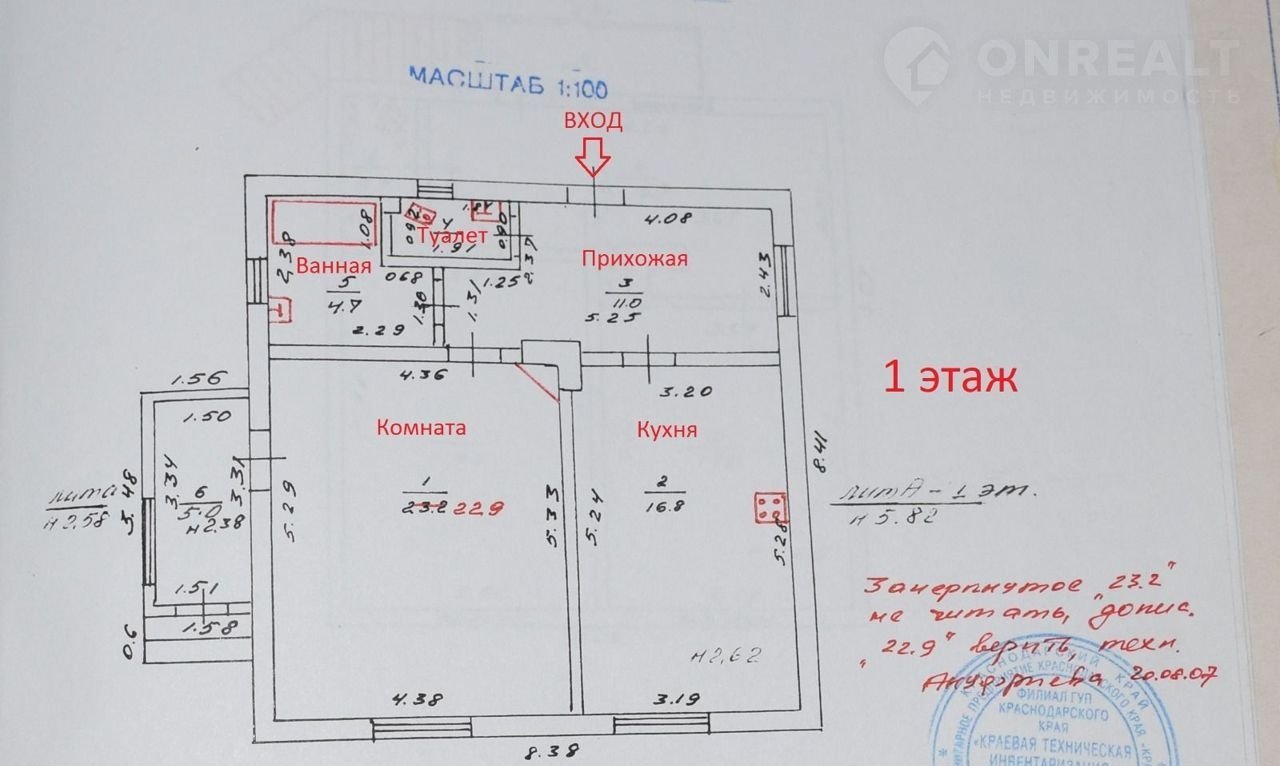 ONREALT
НЕДВИЖИМОСТЬ
МАСШТАБ 1:100
ВХОД
1.84
4
Туалет
1.91
0.90
1.08
4.08
2.38
Ванная
5
4.7
0.68
1.25
2.37
Прихожая
3
11.0
5.25
2.43
1.30
1.31
2.29
4.36
3.20
1 этаж
1.56
1.50
Комната
Кухня
8.41
3.48
3.34
6
5.0
3.31
н2.38
лита
н2.58
5.29
1
23.2 22.9
5.33
5.24
2
16.8
5.28
лит А - 1 эт.
н 5.82
1.51
1.58
0.6
Зачеркнутое "23.2"
не читать, допис.
"22.9" верить, техн.
20.08.07
н2,62
4.38
3.19
8.38
КРАСНОДАРСКИЙ КРАЙ
ФИЛИАЛ ГУП
КРАСНОДАРСКОГО
КРАЯ
«КРАЕВАЯ ТЕХНИЧЕСКАЯ
ИНВЕНТАРИЗАЦИЯ